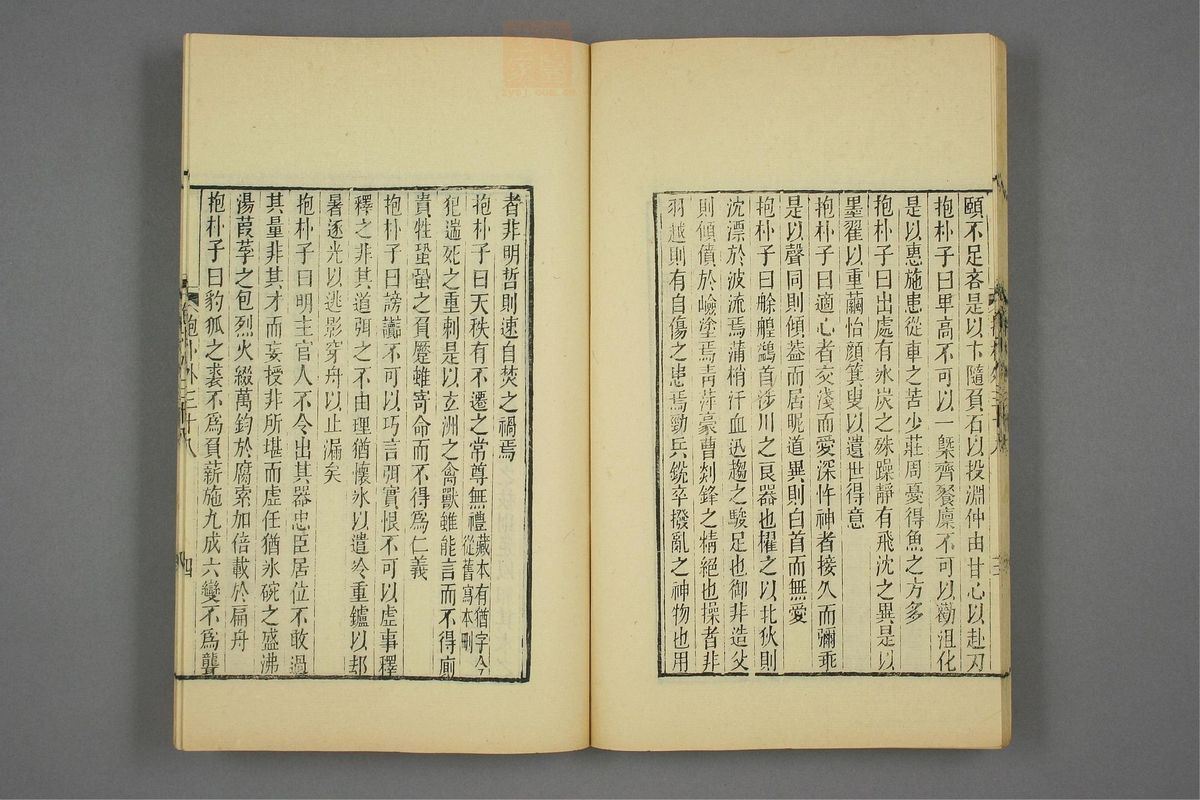 頤不足吝是以卞隨負石以投淵仲由甘心以赴刃
抱朴子曰卑高不可以一槩齊餐廩不可以勸沮化
是以惠施患從車之苦少莊周憂得魚之方多
抱朴子曰出處有氷炭之殊躁靜有飛沈之異是以
墨翟以重繭怡顏箕叟以遺世得意
抱朴子曰適心者交淺而愛深忤神者接久而彌乖
是以聲同則傾葢而居昵道異則白首而無愛
抱朴子曰艅艎鷁首涉川之良器也櫂之以北狄則
沈漂於波流焉蒲梢汗血迅趨之駿足也御非造父
則傾僨於嶮塗焉青萍豪曹剡鋒之精絕也操者非
羽越則有自傷之患焉勁兵銳卒撥亂之神物也用
者非明哲則速自焚之禍焉
抱朴子曰天秩有不遷之常尊無禮藏本有猶字今從舊寫本刪
犯遄死之重刺是以玄洲之禽獸雖能言而不得廁
貴牲蛩蛩之負蹷雖寄命而不得爲仁義
抱朴子曰謗讟不可以巧言弭實恨不可以虛事釋
釋之非其道弭之不由理猶懷氷以遣冷重鑪以却
暑逐光以逃影穿舟以止漏矣
抱朴子曰明主官人不令出其器忠臣居位不敢過
其量非其才而妄授非所堪而虛任猶氷碗之盛沸
湯葭莩之包烈火綴萬鈞於腐索加倍載於扁舟
抱朴子曰豹狐之裘不爲負薪施九成六變不爲聾
抱朴外三十八
四